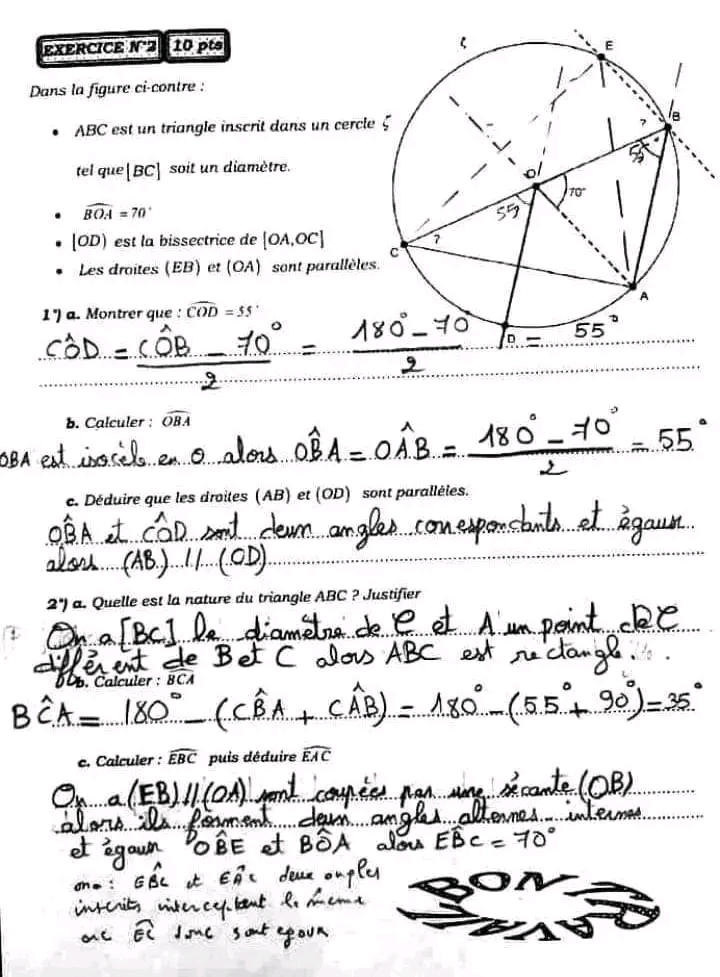 EXERCICE N°2 10 pts
Dans la figure ci-contre :
• ABC est un triangle inscrit dans un cercle ζ
tel que [BC] soit un diamètre.
• BOA = 70°
• [OD) est la bissectrice de [OA,OC]
• Les droites (EB) et (OA) sont parallèles.
ζ
E
B
?
55
O
70°
55
C
?
A
D
1°) a. Montrer que : COD = 55°
CÔD = (CÔB - 70°)/2 = (180° - 70°)/2 = 55°
b. Calculer : OBA
OBA est isocèle en O alors OB̂A = OÂB = (180° - 70°)/2 = 55°
c. Déduire que les droites (AB) et (OD) sont parallèles.
OB̂A et CÔD sont deux angles correspondants et égaux
alors (AB) // (OD)
2°) a. Quelle est la nature du triangle ABC ? Justifier
On a [BC] le diamètre de C et A un point de C
différent de B et C alors ABC est rectangle.
b. Calculer : BCA
BĈA = 180° - (CB̂A + CÂB) = 180° - (55° + 90°) = 35°
c. Calculer : EBC puis déduire EAC
On a (EB) // (OA) sont coupées par une sécante (OB)
alors ils forment deux angles alternes internes
et égaux OB̂E et BÔA alors EB̂C = 70°
on a : EB̂C et EÂC deux angles
inscrits interceptent le même
arc EC donc sont égaux
BON TRAVAIL